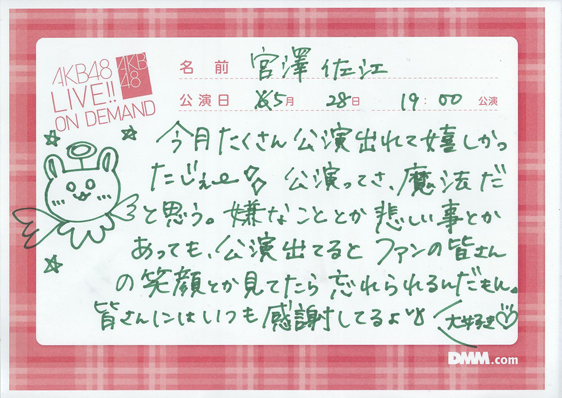 AKB48
LIVE!!
ON DEMAND
AKB
48
名 前 宮澤 佐江
公演日 5月 28日 19:00 公演
今月たくさん公演出れて嬉しかっ
たじぇぇ 公演ってさ、魔法だ
と思う。嫌なこととか悲しい事とか
あっても、公演出てると ファンの皆さん
の笑顔とか見てたら忘れられるんだもん。
皆さんにはいつも感謝してるよ
大好き
DMM.com